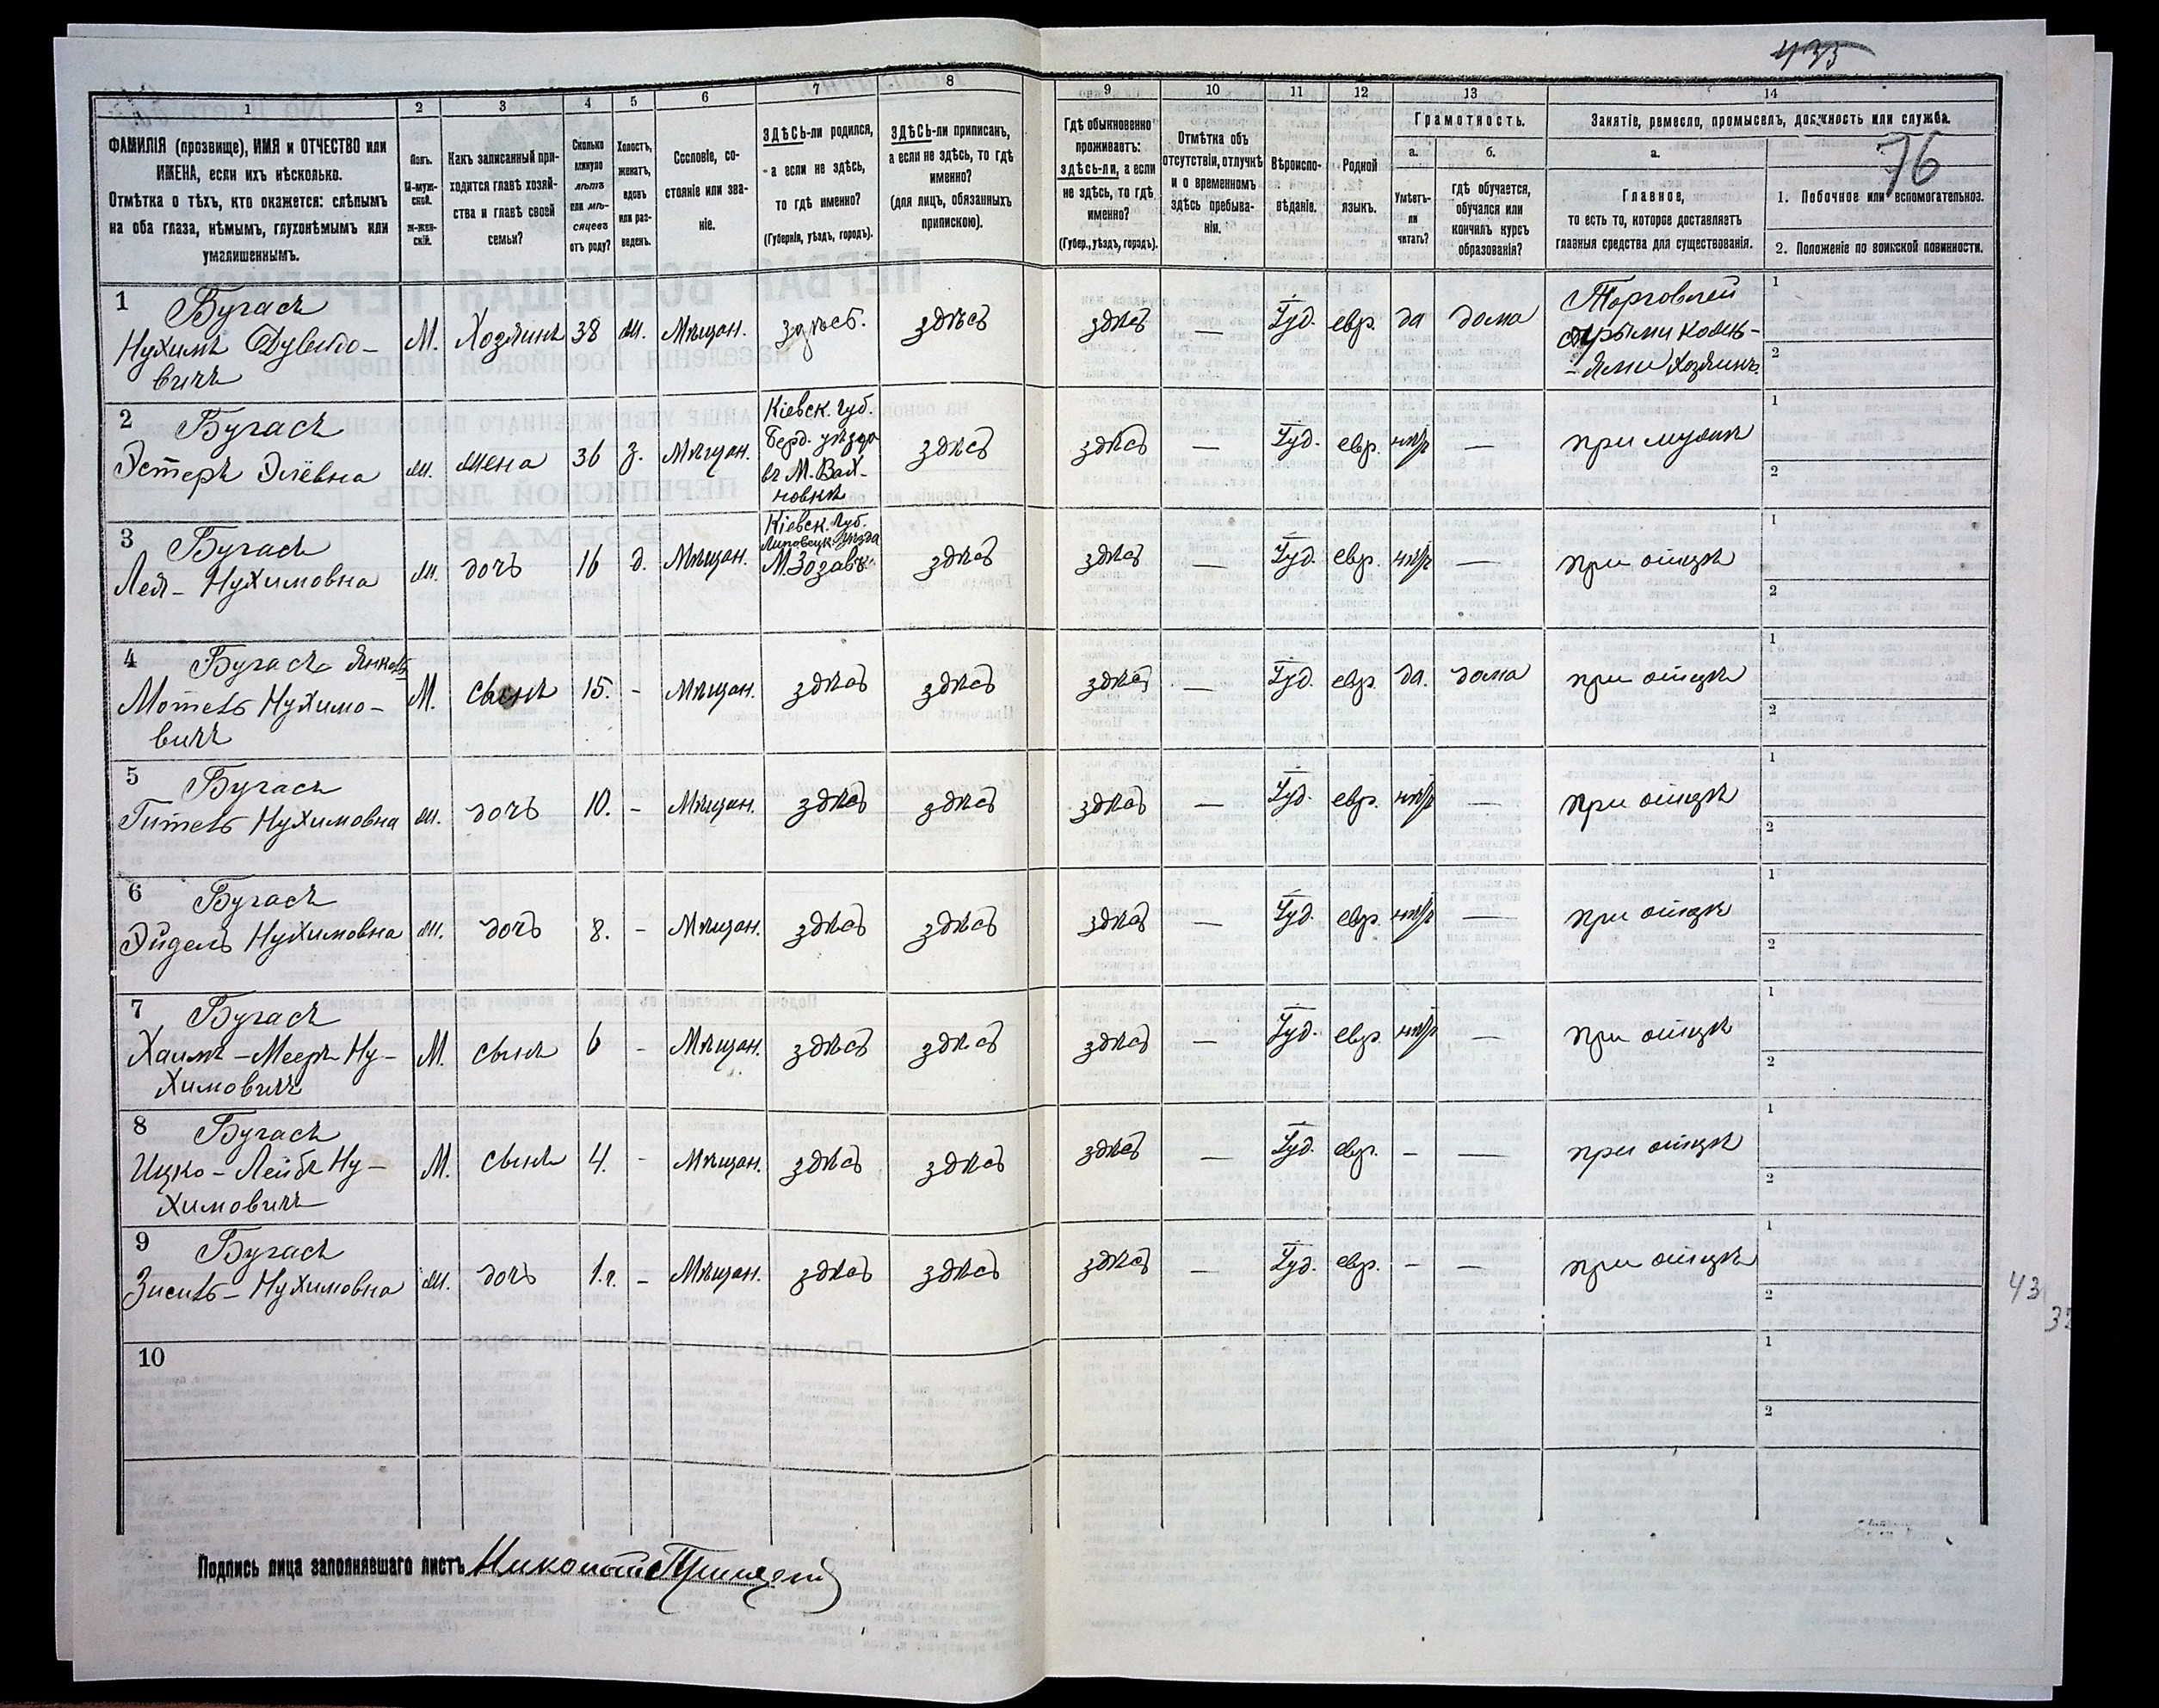 435
76
1 2 3 4 5 6 7 8 9 10 11 12 13 14
ФАМИЛІЯ (прозвище), ИМЯ и ОТЧЕСТВО или
ИМЕНА, если ихъ нѣсколько.
Отмѣтка о тѣхъ, кто окажется: слѣпымъ
на оба глаза, нѣмымъ, глухонѣмымъ или
умалишеннымъ.
Полъ.
М-муж-
ской.
Ж-жен-
скій.
Какъ записанный при-
ходится главѣ хозяй-
ства и главѣ своей
семьи?
Сколько
минуло
лѣтъ
или мѣ-
сяцевъ
отъ роду?
Холостъ,
женатъ,
вдовъ
или раз-
веденъ.
Сословіе, со-
стояніе или зва-
ніе.
ЗДѢСЬ-ли родился,
а если не здѣсь,
то гдѣ именно?
(Губернія, уѣздъ, городъ).
ЗДѢСЬ-ли приписанъ,
а если не здѣсь, то гдѣ
именно?
(для лицъ, обязанныхъ
припискою).
Гдѣ обыкновенно
проживаетъ:
здѣсь-ли, а если
не здѣсь, то гдѣ
именно?
(Губер., уѣздъ, городъ).
Отмѣтка объ
отсутствіи, отлучкѣ
и о временномъ
здѣсь пребыва-
ніи.
Вѣроиспо-
вѣданіе.
Родной
языкъ.
Грамотность.
а.
Умѣетъ-
ли
читать?
б.
гдѣ обучается,
обучался или
кончилъ курсъ
образованія?
Занятіе, ремесло, промыселъ, должность или служба.
а.
Главное,
то есть то, которое доставляетъ
главныя средства для существованія.
1. Побочное или вспомогательное.
2. Положеніе по воинской повинности.
1 Бугасъ
Нухимъ Дувидо-
вичъ
М. Хозяинъ 38 ж. Мѣщан. здѣсь. здѣсь здѣсь — Іуд. евр. да дома
Торговлей
сырыми кожа-
ями Хозяинъ
1
2
2 Бугасъ
Эстеръ Элевна
ж. жена 36 з. Мѣщан.
Кіевск. губ.
Берд. уѣзда
въ М. Вах-
новкѣ
здѣсь здѣсь — Іуд. евр. нѣтъ — при мужѣ
1
2
3 Бугасъ
Лея - Нухимовна
ж. дочь 16 д. Мѣщан.
Кіевск. губ.
Липовецк. уѣзда
здѣсь здѣсь — Іуд. евр. нѣтъ — при отцѣ
1
2
4 Бугасъ Янкель
Мотель Нухимо-
вичъ
М. сынъ 15. - Мѣщан. здѣсь здѣсь здѣсь — Іуд. евр. да. дома при отцѣ
1
2
5 Бугасъ
Гитель Нухимовна
ж. дочь 10. - Мѣщан. здѣсь здѣсь здѣсь — Іуд. евр. нѣтъ — при отцѣ
1
2
6 Бугасъ
Эйдель Нухимовна
ж. дочь 8. - Мѣщан. здѣсь здѣсь здѣсь — Іуд. евр. нѣтъ — при отцѣ
1
2
7 Бугасъ
Хаимъ - Мееръ Ну-
химовичъ
М. сынъ 6 - Мѣщан. здѣсь здѣсь здѣсь — Іуд. евр. нѣтъ — при отцѣ
1
2
8 Бугасъ
Ицко - Лейбъ Ну-
химовичъ
М. сынъ 4. - Мѣщан. здѣсь здѣсь здѣсь — Іуд. евр. - — при отцѣ
1
2
9 Бугасъ
Зисель - Нухимовна
ж. дочь 1.г. - Мѣщан. здѣсь здѣсь здѣсь — Іуд. евр. - — при отцѣ
1
2
43
10
1
2
Подпись лица заполнявшаго листъ